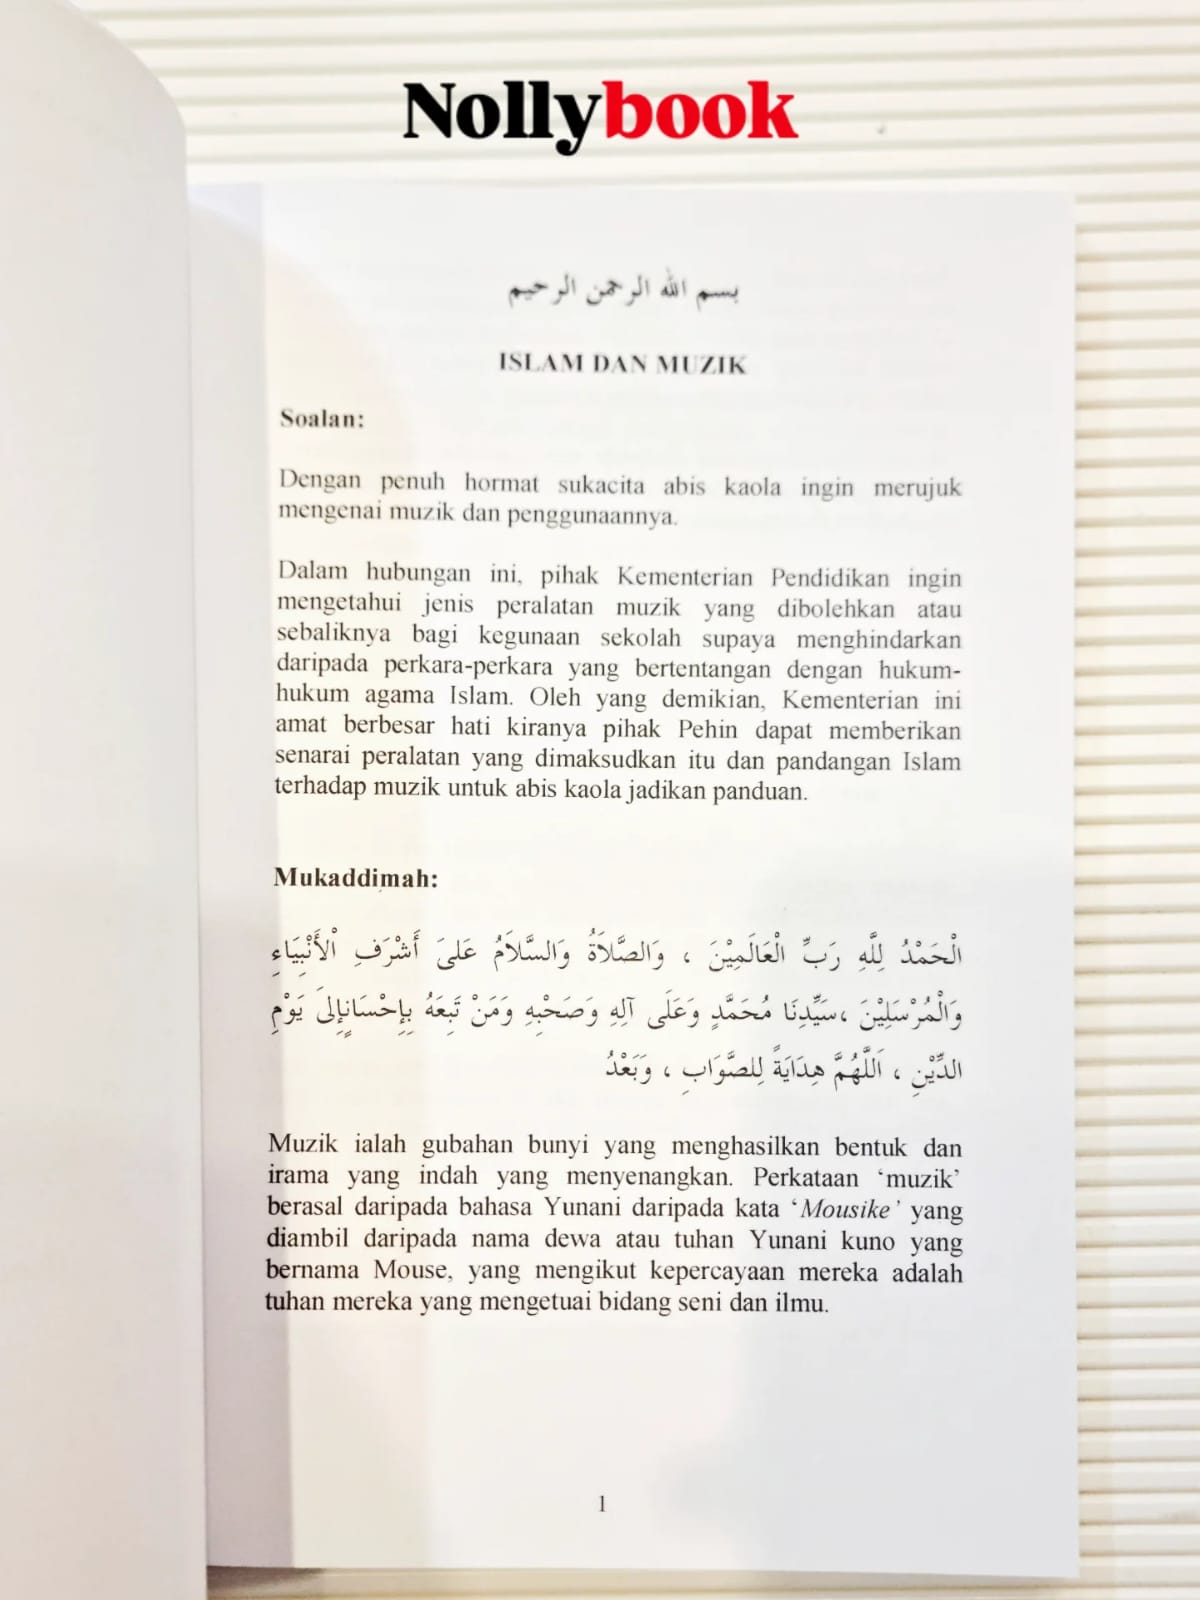 Nollybook
بسم الله الرحمن الرحيم
ISLAM DAN MUZIK
Soalan:
Dengan penuh hormat sukacita abis kaola ingin merujuk
mengenai muzik dan penggunaannya.
Dalam hubungan ini, pihak Kementerian Pendidikan ingin
mengetahui jenis peralatan muzik yang dibolehkan atau
sebaliknya bagi kegunaan sekolah supaya menghindarkan
daripada perkara-perkara yang bertentangan dengan hukum-
hukum agama Islam. Oleh yang demikian, Kementerian ini
amat berbesar hati kiranya pihak Pehin dapat memberikan
senarai peralatan yang dimaksudkan itu dan pandangan Islam
terhadap muzik untuk abis kaola jadikan panduan.
Mukaddimah:
الْحَمْدُ لِلَّهِ رَبِّ الْعَالَمِيْنَ ، وَالصَّلاَةُ وَالسَّلاَمُ عَلىَ أَشْرَفِ اْلأَنْبِيَاءِ
وَالْمُرْسَلِيْنَ ،سَيِّدِنَا مُحَمَّدٍ وَعَلَى آلِهِ وَصَحْبِهِ وَمَنْ تَبِعَهُ بِإِحْسَانٍإِلىَ يَوْمِ
الدِّيْنِ ، اَللَّهُمَّ هِدَايَةً لِلصَّوَابِ ، وَبَعْدُ
Muzik ialah gubahan bunyi yang menghasilkan bentuk dan
irama yang indah yang menyenangkan. Perkataan ‘muzik’
berasal daripada bahasa Yunani daripada kata ‘Mousike’ yang
diambil daripada nama dewa atau tuhan Yunani kuno yang
bernama Mouse, yang mengikut kepercayaan mereka adalah
tuhan mereka yang mengetuai bidang seni dan ilmu.
1